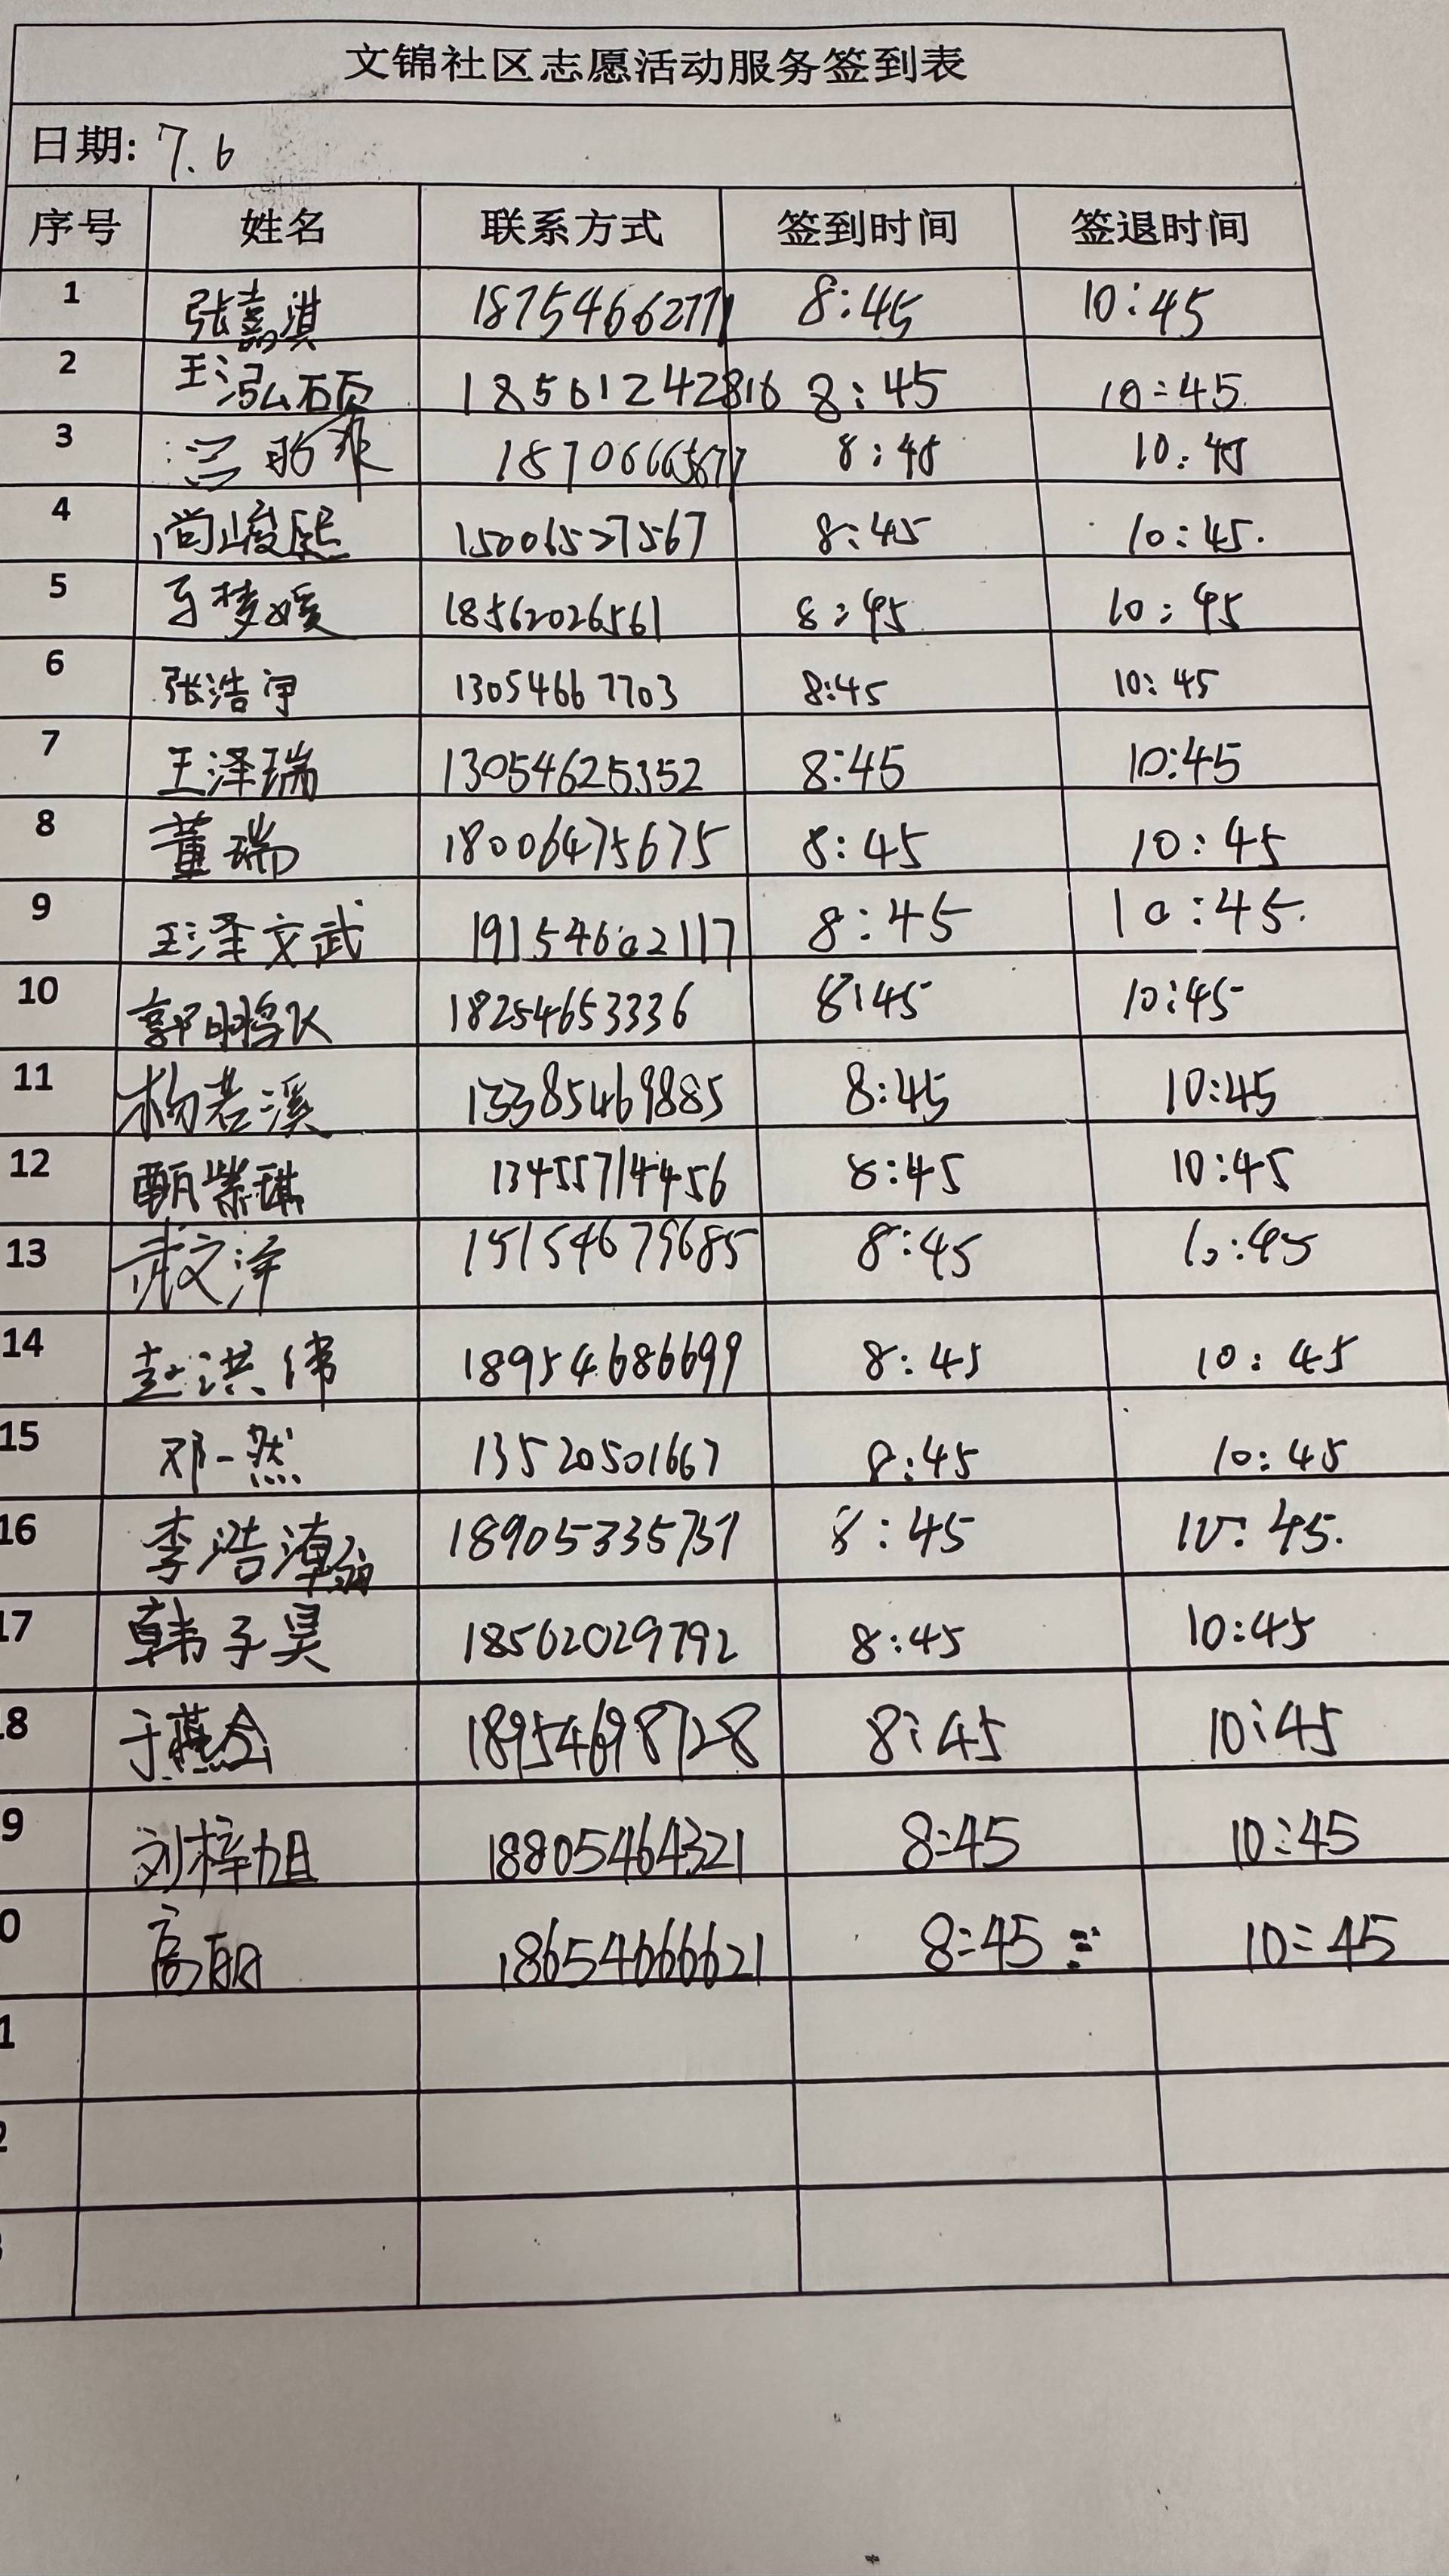 文锦社区志愿活动服务签到表
日期: 7.6
序号 姓名 联系方式 签到时间 签退时间
1 张嘉淇 18754662771 8:45 10:45
2 王泓硕 18561242816 8:45 10:45
3 8:45 10:45
4 尚峻熙 15006527567 8:45 10:45.
5 马梦媛 18562026561 8:45 10:45
6 张浩宇 13054667703 8:45 10:45
7 王泽瑞 13054625352 8:45 10:45
8 董瑞 18006475675 8:45 10:45
9 王泽文武 19154602117 8:45 10:45.
10 郭 18254653336 8:45 10:45
11 杨若溪 13385469885 8:45 10:45
12 甄紫琪 13455714456 8:45 10:45
13 武文泽 15154679685 8:45 10:45
14 赵洪伟 18954686699 8:45 10:45
15 邓一然 13520501667 8:45 10:45
16 李浩 18905335737 8:45 10:45.
17 韩子昊 18562029792 8:45 10:45
8 于燕会 18954698728 8:45 10:45
9 刘梓旭 18805464321 8:45 10:45
0 高 18654666621 8:45 10:45
1
2